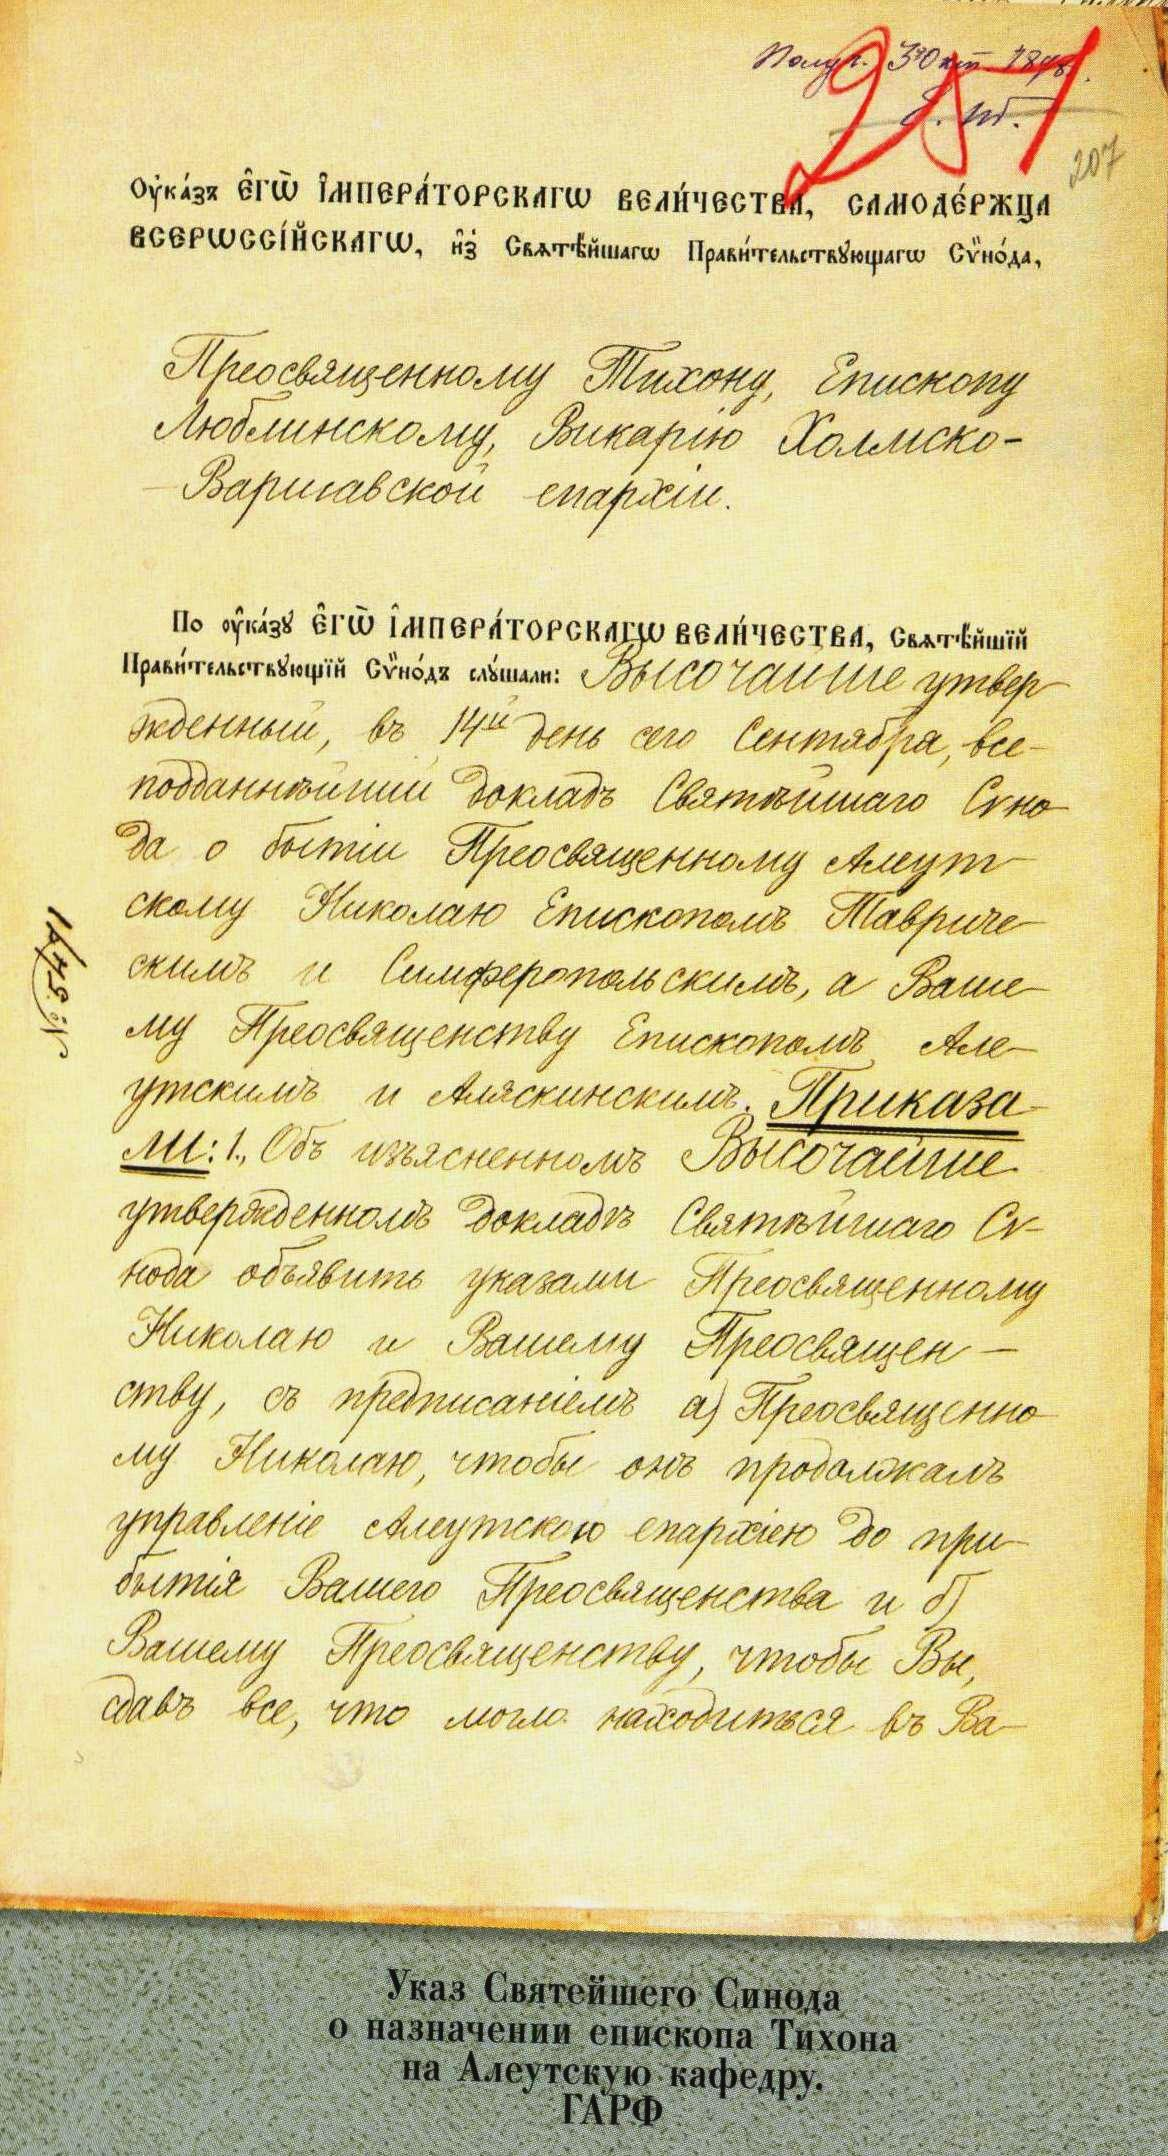 Получ. 3 Окт. 1898.
251
207
Оу҆ка́зъ Є҆ГѠ̀ І҆МПЕРА́ТОРСКАГѠ ВЕЛИ́ЧЕСТВА, САМОДЕ́РЖЦА
ВСЕРѠССІ́ЙСКАГѠ, и҆з̾ Свѧтѣ́йшагѡ Прави́тельствꙋющагѡ Сѷно́да,
Преосвященному Тихону, Епископу
Люблинскому, Викарію Холмско-
-Варшавской епархіи.
По оу҆ка́зꙋ Є҆ГѠ̀ І҆МПЕРА́ТОРСКАГѠ ВЕЛИ́ЧЕСТВА, Свѧтѣ́йшїй
Прави́тельствꙋющїй Сѷно́дъ слꙋ́шали: Высочайше утвер
жденный, въ 14й день сего Сентября, все-
подданнѣйшій докладъ Святѣйшаго Сѵно-
да о бытіи Преосвященному Алеут-
скому Николаю Епископомъ Тавриче-
скимъ и Симферопольскимъ, а Ваше-
му Преосвященству Епископомъ Але-
утскимъ и Аляскинскимъ. Приказа-
ли: 1., Объ изъясненномъ Высочайше
утвержденномъ докладѣ Святѣйшаго Сѵ-
нода объявить указами Преосвященному
Николаю и Вашему Преосвящен-
ству, съ предписаніемъ а) Преосвященно-
му Николаю, чтобы онъ продолжалъ
управленіе Алеутскою епархіею до при-
бытія Вашего Преосвященства и б)
Вашему Преосвященству, чтобы Вы,
сдавъ все, что могло находиться въ Ва-
Указ Святейшего Синода
о назначении епископа Тихона
на Алеутскую кафедру.
ГАРФ